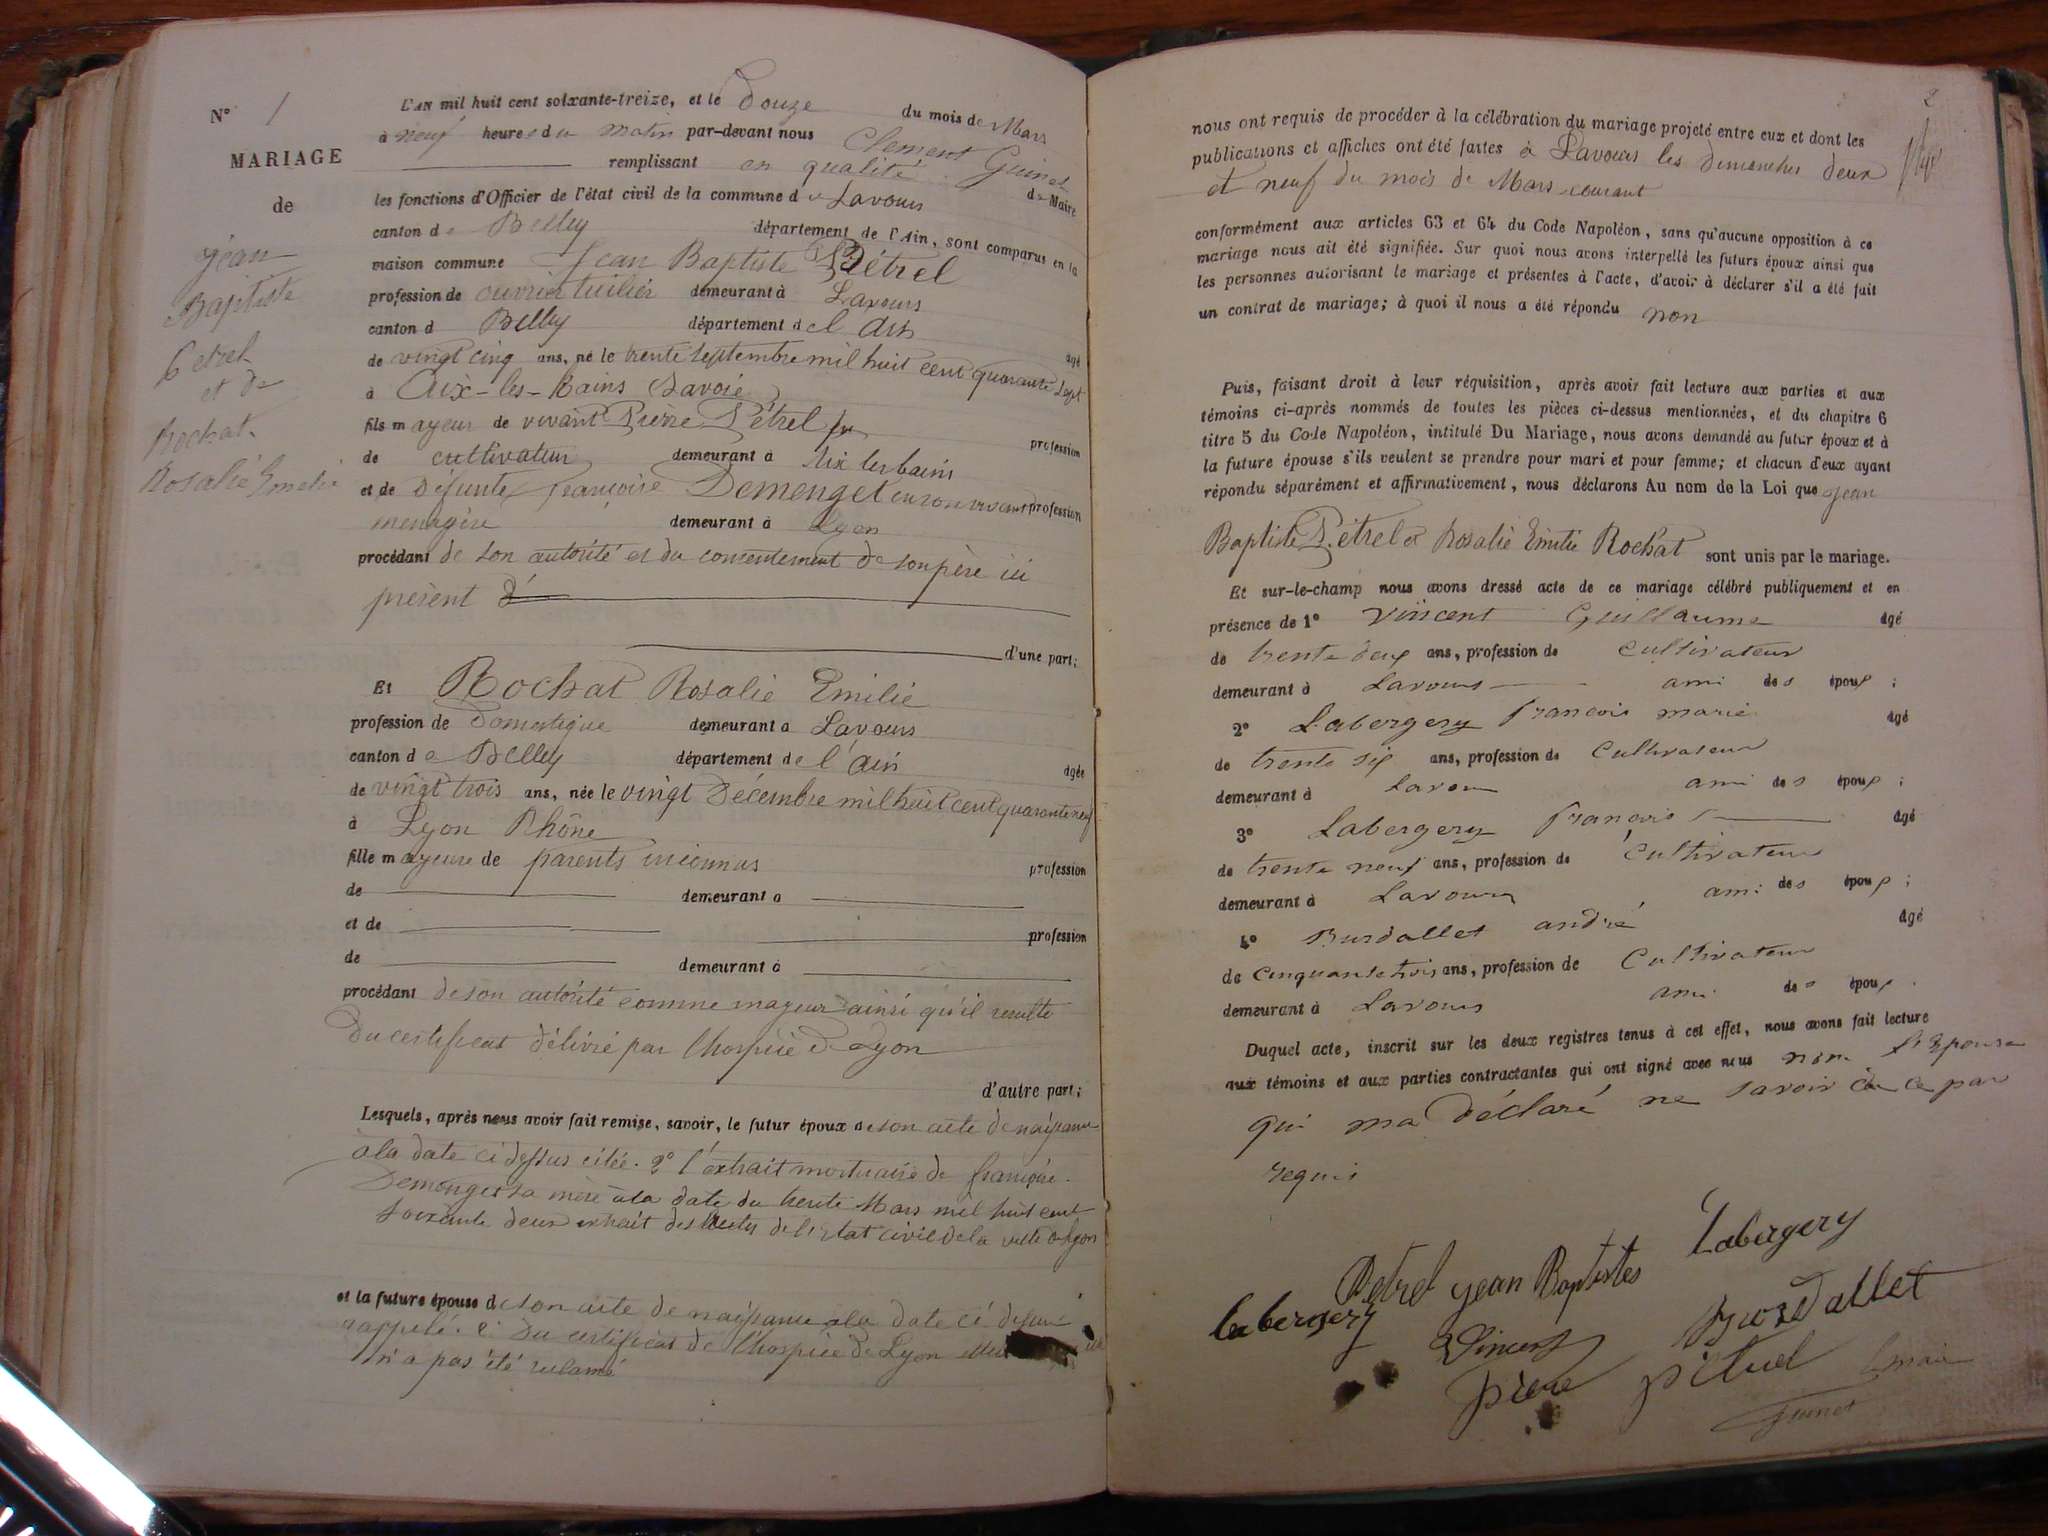 N° 1
MARIAGE
de
Jean
Baptiste
Petrel
et de
Rochat
Rosalie Emelie
L'AN mil huit cent soixante-treize, et le Douze du mois de Mars
à neuf heures du matin par-devant nous Clement Guinet
remplissant en qualité de Maire
les fonctions d'Officier de l'état civil de la commune de Lavours
canton de Belley département de l'Ain, sont comparus en la
maison commune Jean Baptiste Pétrel
profession de ouvrier tuilier demeurant à Lavours
canton d Belley département de l'Ain âgé
de vingt cinq ans, né le trente septembre mil huit cent quarante sept
à Aix-les-Bains Savoie
fils mayeur de vivant Pierre Pétrel profession
de cultivateur demeurant à Aix les bains
et de Défunte françoise Demenget en son vivant profession
menagère demeurant à Lyon
procédant de son autorité et du consentement de son père ici
présent
d'une part;
Et Rochat Rosalie Emilie
profession de Domestique demeurant à Lavours
canton de Belley département de l'Ain âgée
de vingt trois ans, née le vingt Décembre mil huit cent quarante neuf
à Lyon Rhône
fille mayeure de parents inconnus profession
de demeurant à
et de profession
de demeurant à
procédant de son autorité comme mayeur ainsi qu'il resulte
Du certificat délivré par l'hospice de Lyon
d'autre part;
Lesquels, après nous avoir fait remise, savoir, le futur époux de son acte de naissance
à la date ci dessus citée. 2° l'extrait mortuaire de françoise
Demenget sa mère à la date du trente Mars mil huit cent
soixante deux extrait des actes de l'état civil de la ville de Lyon
et la future épouse de son acte de naissance à la date ci dessus
rappelé. 2° Du certificat de l'hospice de Lyon
n'a pas été reclamé
2
nous ont requis de procéder à la célébration du mariage projeté entre eux et dont les
publications et affiches ont été faites à Lavours les dimanches deux
et neuf du mois de Mars courant
conformément aux articles 63 et 64 du Code Napoléon, sans qu'aucune opposition à ce
mariage nous ait été signifiée. Sur quoi nous avons interpellé les futurs époux ainsi que
les personnes autorisant le mariage et présentes à l'acte, d'avoir à déclarer s'il a été fait
un contrat de mariage; à quoi il nous a été répondu non
Puis, faisant droit à leur réquisition, après avoir fait lecture aux parties et aux
témoins ci-après nommés de toutes les pièces ci-dessus mentionnées, et du chapitre 6
titre 5 du Code Napoléon, intitulé Du Mariage, nous avons demandé au futur époux et à
la future épouse s'ils veulent se prendre pour mari et pour femme; et chacun d'eux ayant
répondu séparément et affirmativement, nous déclarons Au nom de la Loi que Jean
Baptiste Pétrel et Rosalie Emilie Rochat sont unis par le mariage.
Et sur-le-champ nous avons dressé acte de ce mariage célébré publiquement et en
présence de 1° Vincent Guillaume âgé
de trente deux ans, profession de Cultivateur
demeurant à Lavours ami des époux;
2° Labergery François marie âgé
de trente six ans, profession de Cultivateur
demeurant à Lavours ami des époux;
3° Labergery François âgé
de trente neuf ans, profession de Cultivateur
demeurant à Lavours ami des époux;
4° Burdallet andré âgé
de cinquante trois ans, profession de Cultivateur
demeurant à Lavours ami des époux.
Duquel acte, inscrit sur les deux registres tenus à cet effet, nous avons fait lecture
aux témoins et aux parties contractantes qui ont signé avec nous non l'épouse
qui ma déclaré ne savoir de ce par
requis
Labergery
Petrel jean Baptistes
labergery
Vincent
Burdallet
piere pétrel
le maire
Guinet